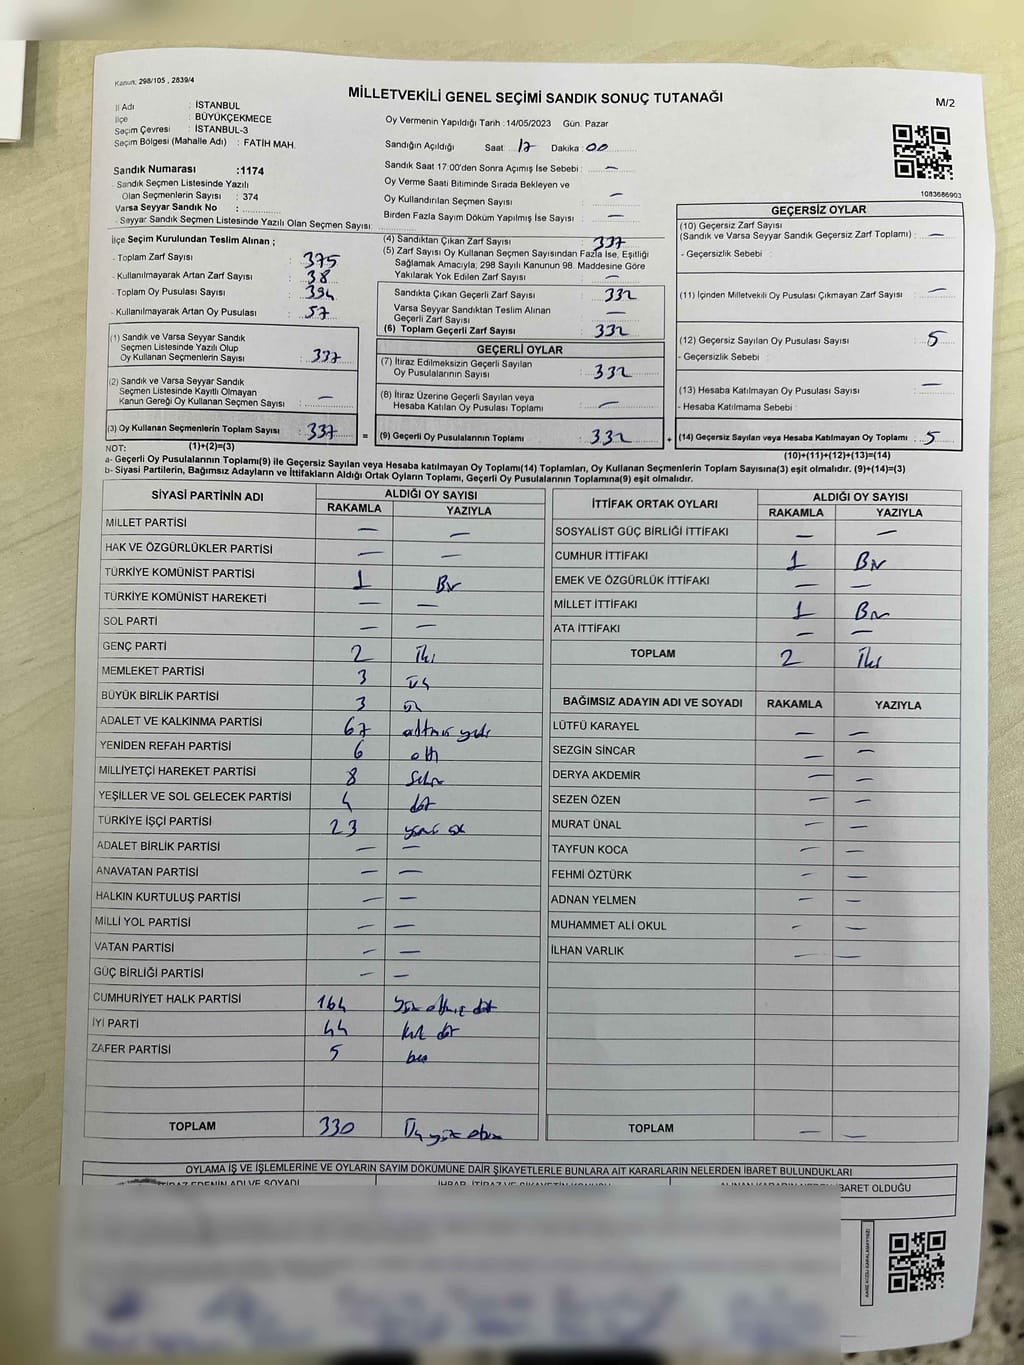 Kanun: 298/105 , 2839/4
MİLLETVEKİLİ GENEL SEÇİMİ SANDIK SONUÇ TUTANAĞI
M/2
İl Adı : İSTANBUL
İlçe : BÜYÜKÇEKMECE
Seçim Çevresi : İSTANBUL-3
Seçim Bölgesi (Mahalle Adı) : FATİH MAH.
Oy Vermenin Yapıldığı Tarih :14/05/2023 Gün: Pazar
Sandığın Açıldığı Saat: 17 Dakika: 00
Sandık Saat 17:00'den Sonra Açımış İse Sebebi : —
Oy Verme Saati Bitiminde Sırada Bekleyen ve
Oy Kullandırılan Seçmen Sayısı : —
Birden Fazla Sayım Döküm Yapılmış İse Sayısı : —
1083686903
Sandık Numarası :1174
- Sandık Seçmen Listesinde Yazılı
Olan Seçmenlerin Sayısı : 374
Varsa Seyyar Sandık No :
- Seyyar Sandık Seçmen Listesinde Yazılı Olan Seçmen Sayısı:
İlçe Seçim Kurulundan Teslim Alınan ;
- Toplam Zarf Sayısı : 375
- Kullanılmayarak Artan Zarf Sayısı : 38
- Toplam Oy Pusulası Sayısı : 394
- Kullanılmayarak Artan Oy Pusulası : 57
(1) Sandık ve Varsa Seyyar Sandık
Seçmen Listesinde Yazılı Olup
Oy Kullanan Seçmenlerin Sayısı : 337
(2) Sandık ve Varsa Seyyar Sandık
Seçmen Listesinde Kayıtlı Olmayan
Kanun Gereği Oy Kullanan Seçmen Sayısı : —
(3) Oy Kullanan Seçmenlerin Toplam Sayısı : 337
(1)+(2)=(3)
(4) Sandıktan Çıkan Zarf Sayısı : 337
(5) Zarf Sayısı Oy Kullanan Seçmen Sayısından Fazla İse, Eşitliği
Sağlamak Amacıyla; 298 Sayılı Kanunun 98. Maddesine Göre
Yakılarak Yok Edilen Zarf Sayısı : —
Sandıkta Çıkan Geçerli Zarf Sayısı : 332
Varsa Seyyar Sandıktan Teslim Alınan
Geçerli Zarf Sayısı : —
(6) Toplam Geçerli Zarf Sayısı : 332
GEÇERLİ OYLAR
(7) İtiraz Edilmeksizin Geçerli Sayılan
Oy Pusulalarının Sayısı : 332
(8) İtiraz Üzerine Geçerli Sayılan veya
Hesaba Katılan Oy Pusulası Toplamı : —
= (9) Geçerli Oy Pusulalarının Toplamı : 332
GEÇERSİZ OYLAR
(10) Geçersiz Zarf Sayısı
(Sandık ve Varsa Seyyar Sandık Geçersiz Zarf Toplamı) : —
- Geçersizlik Sebebi :
(11) İçinden Milletvekili Oy Pusulası Çıkmayan Zarf Sayısı : —
(12) Geçersiz Sayılan Oy Pusulası Sayısı : 5
- Geçersizlik Sebebi :
(13) Hesaba Katılmayan Oy Pusulası Sayısı : —
- Hesaba Katılmama Sebebi :
+ (14) Geçersiz Sayılan veya Hesaba Katılmayan Oy Toplamı : 5
(10)+(11)+(12)+(13)=(14)
NOT:
a- Geçerli Oy Pusulalarının Toplamı(9) ile Geçersiz Sayılan veya Hesaba katılmayan Oy Toplamı(14) Toplamları, Oy Kullanan Seçmenlerin Toplam Sayısına(3) eşit olmalıdır. (9)+(14)=(3)
b- Siyasi Partilerin, Bağımsız Adayların ve İttifakların Aldığı Ortak Oyların Toplamı, Geçerli Oy Pusulalarının Toplamına(9) eşit olmalıdır.
SİYASİ PARTİNİN ADI ALDIĞI OY SAYISI
RAKAMLA YAZIYLA
MİLLET PARTİSİ — —
HAK VE ÖZGÜRLÜKLER PARTİSİ — —
TÜRKİYE KOMÜNİST PARTİSİ 1 Bir
TÜRKİYE KOMÜNİST HAREKETİ — —
SOL PARTİ — —
GENÇ PARTİ 2 İki
MEMLEKET PARTİSİ 3 üç
BÜYÜK BİRLİK PARTİSİ 3 üç
ADALET VE KALKINMA PARTİSİ 67 altmış yedi
YENİDEN REFAH PARTİSİ 6 altı
MİLLİYETÇİ HAREKET PARTİSİ 8 Sekiz
YEŞİLLER VE SOL GELECEK PARTİSİ 4 dört
TÜRKİYE İŞÇİ PARTİSİ 23
ADALET BİRLİK PARTİSİ — —
ANAVATAN PARTİSİ — —
HALKIN KURTULUŞ PARTİSİ — —
MİLLİ YOL PARTİSİ — —
VATAN PARTİSİ — —
GÜÇ BİRLİĞİ PARTİSİ — —
CUMHURİYET HALK PARTİSİ 164 Yüz altmış dört
İYİ PARTİ 44 kırk dört
ZAFER PARTİSİ 5 beş
TOPLAM 330 Üç yüz otuz
İTTİFAK ORTAK OYLARI ALDIĞI OY SAYISI
RAKAMLA YAZIYLA
SOSYALİST GÜÇ BİRLİĞİ İTTİFAKI — —
CUMHUR İTTİFAKI 1 Bir
EMEK VE ÖZGÜRLÜK İTTİFAKI — —
MİLLET İTTİFAKI 1 Bir
ATA İTTİFAKI — —
TOPLAM 2 İki
BAĞIMSIZ ADAYIN ADI VE SOYADI RAKAMLA YAZIYLA
LÜTFÜ KARAYEL — —
SEZGİN SİNCAR — —
DERYA AKDEMİR — —
SEZEN ÖZEN — —
MURAT ÜNAL — —
TAYFUN KOCA — —
FEHMİ ÖZTÜRK — —
ADNAN YELMEN — —
MUHAMMET ALİ OKUL — —
İLHAN VARLIK — —
TOPLAM — —
OYLAMA İŞ VE İŞLEMLERİNE VE OYLARIN SAYIM DÖKÜMÜNE DAİR ŞİKAYETLERLE BUNLARA AİT KARARLARIN NELERDEN İBARET BULUNDUKLARI
İTİRAZ EDENİN ADI VE SOYADI İHBAR, İTİRAZ VE ŞİKAYETİN KONUSU ALINAN KARARIN NEDEN İBARET OLDUĞU